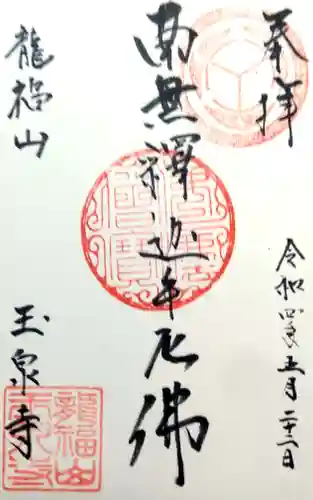 奉拝
令和四年五月二十二日
南無釋迦牟尼佛
龍福山
玉泉寺
佛法僧寶
龍福山
玉泉寺